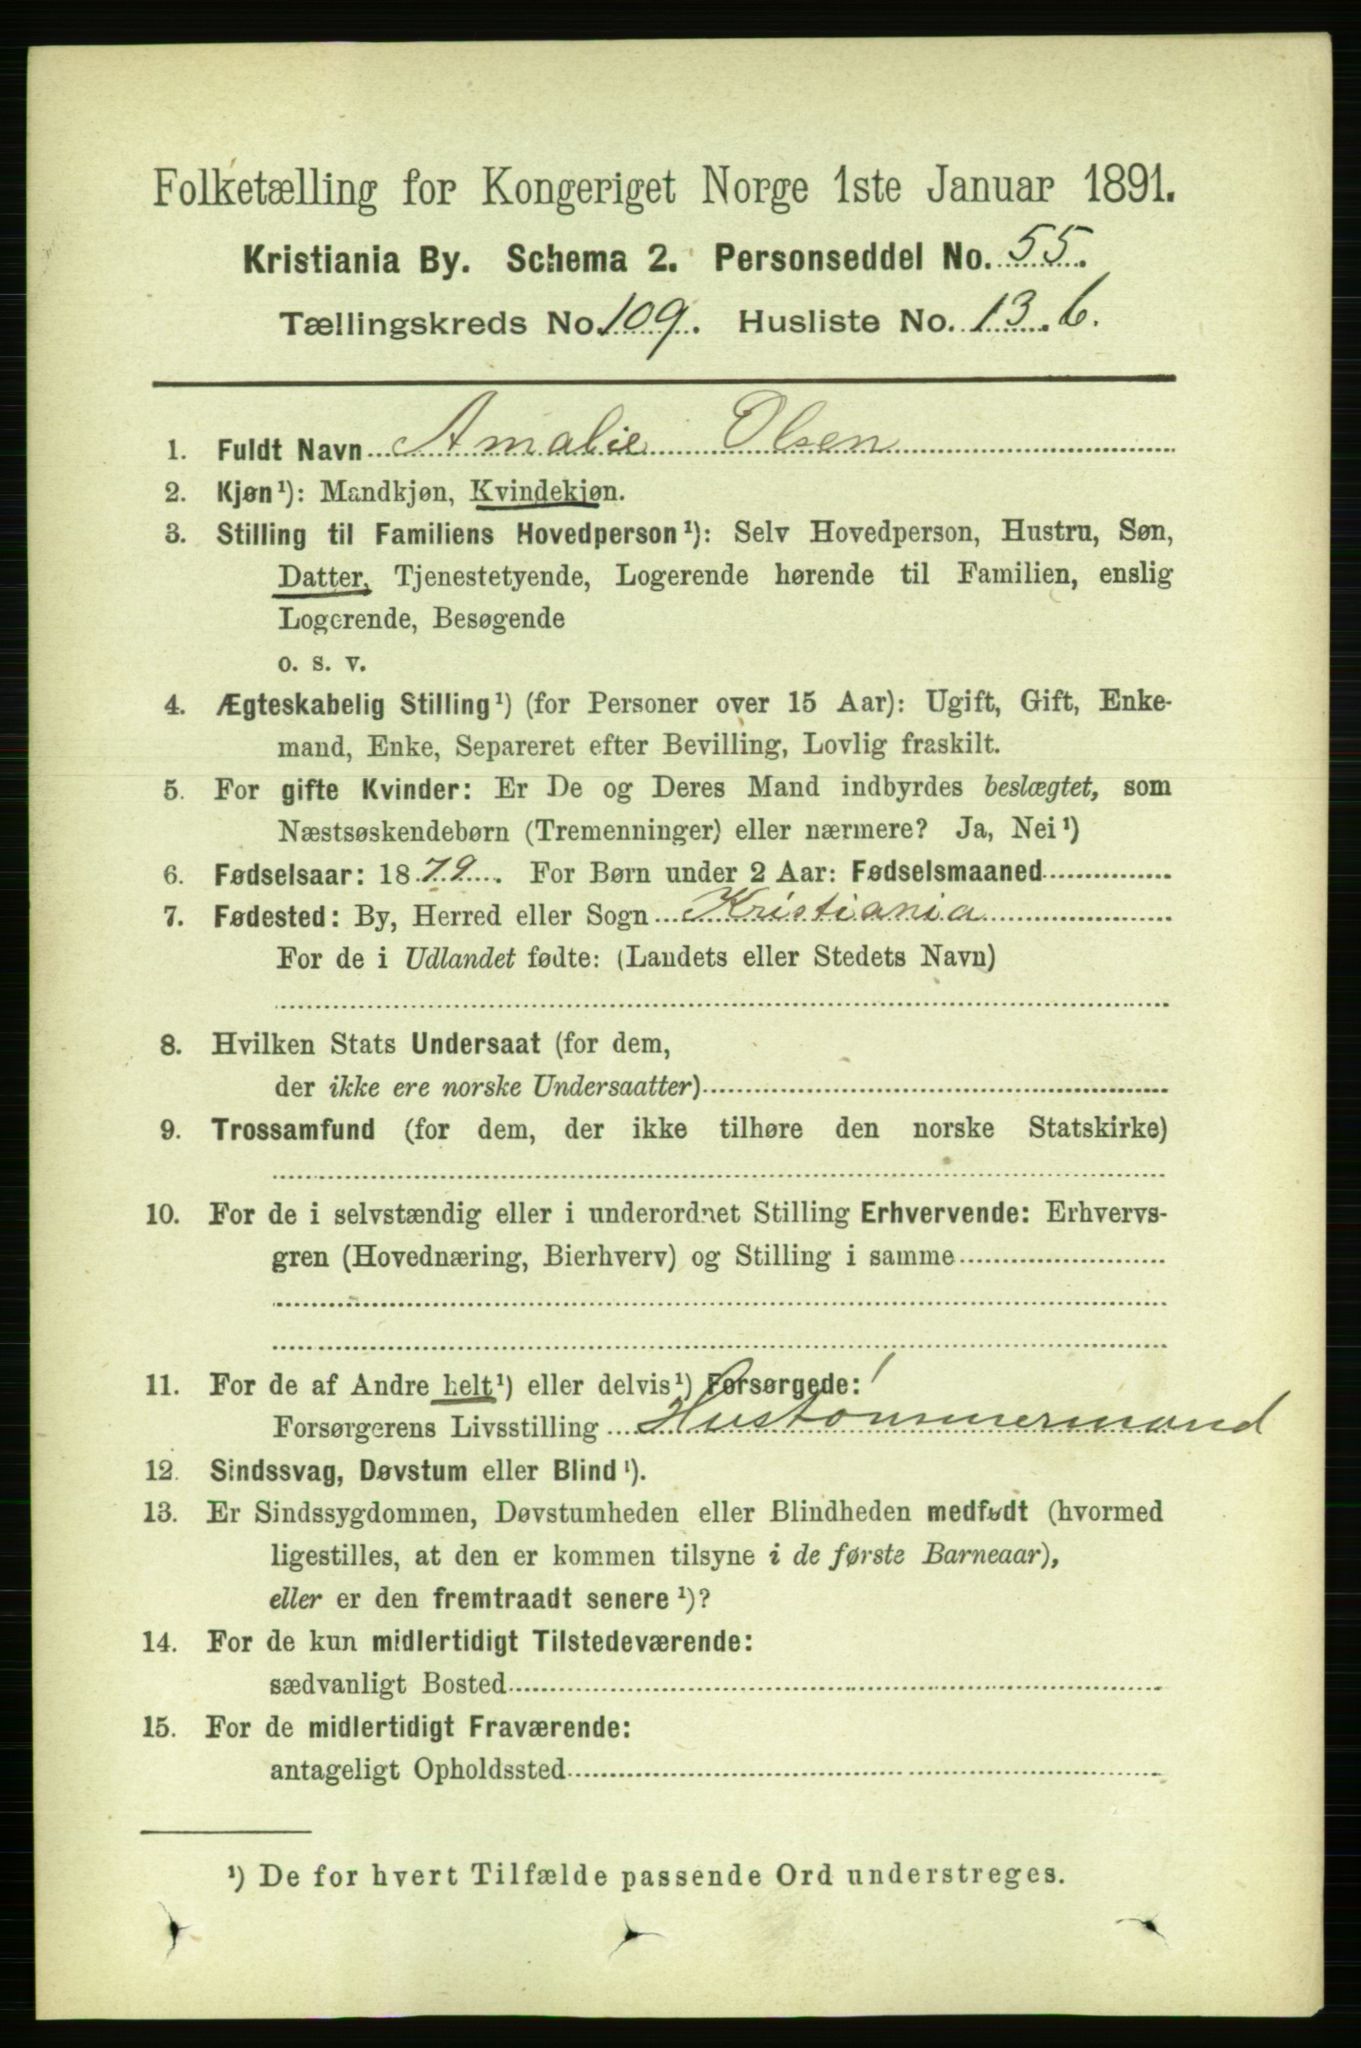 Folketælling for Kongeriget Norge 1ste Januar 1891.
Kristiania By. Schema 2. Personseddel No. 55.
Tællingskreds No. 109. Husliste No. 13.b.
1. Fuldt Navn Amalie Olsen
2. Kjøn¹): Mandkjøn, Kvindekjøn.
3. Stilling til Familiens Hovedperson¹): Selv Hovedperson, Hustru, Søn,
Datter, Tjenestetyende, Logerende hørende til Familien, enslig
Logerende, Besøgende
o. s. v.
4. Ægteskabelig Stilling¹) (for Personer over 15 Aar): Ugift, Gift, Enke-
mand, Enke, Separeret efter Bevilling, Lovlig fraskilt.
5. For gifte Kvinder: Er De og Deres Mand indbyrdes beslægtet, som
Næstsøskendebørn (Tremenninger) eller nærmere? Ja, Nei¹)
6. Fødselsaar: 1879. For Børn under 2 Aar: Fødselsmaaned
7. Fødested: By, Herred eller Sogn Kristiania
For de i Udlandet fødte: (Landets eller Stedets Navn)
8. Hvilken Stats Undersaat (for dem,
der ikke ere norske Undersaatter)
9. Trossamfund (for dem, der ikke tilhøre den norske Statskirke)
10. For de i selvstændig eller i underordnet Stilling Erhvervende: Erhvervs-
gren (Hovednæring, Bierhverv) og Stilling i samme
11. For de af Andre helt¹) eller delvis¹) Forsørgede:
Forsørgerens Livsstilling Hustømmermand
12. Sindssvag, Døvstum eller Blind¹).
13. Er Sindssygdommen, Døvstumheden eller Blindheden medfødt (hvormed
ligestilles, at den er kommen tilsyne i de første Barneaar),
eller er den fremtraadt senere¹)?
14. For de kun midlertidigt Tilstedeværende:
sædvanligt Bosted
15. For de midlertidigt Fraværende:
antageligt Opholdssted
¹) De for hvert Tilfælde passende Ord understreges.